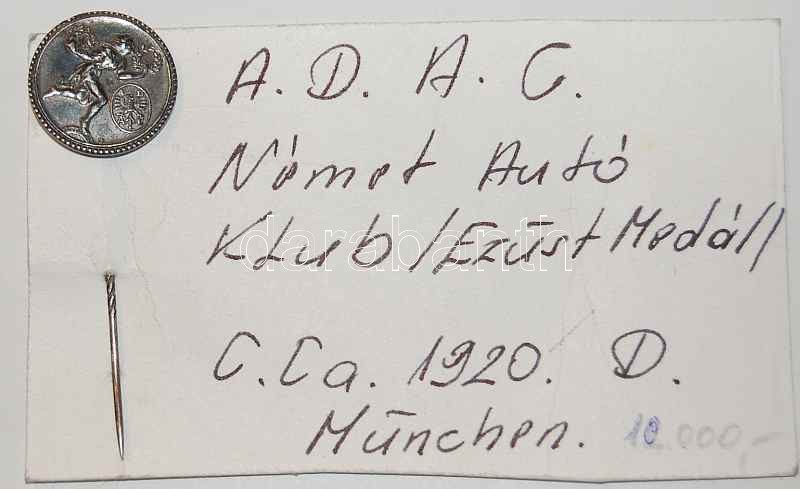 A. D. A. C.
Német Autó
Klub/Ezüst Medáll
darabanth
C.Ca. 1920. D.
München. 10.000,-